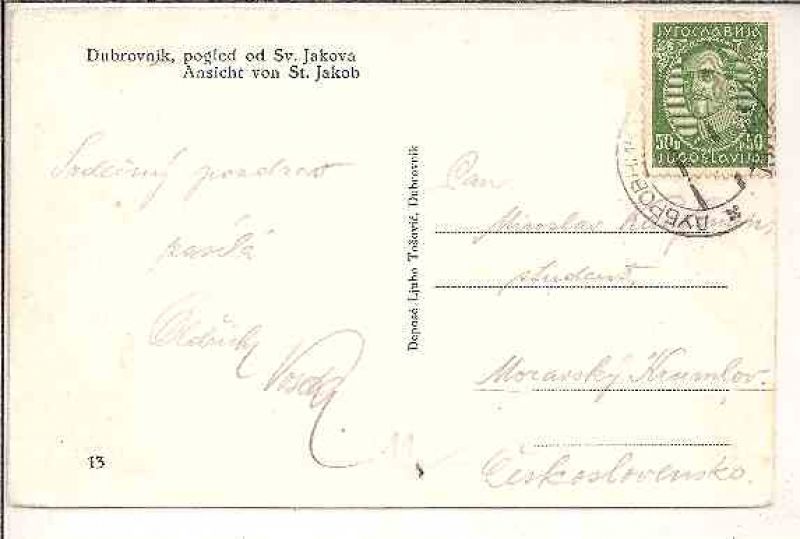 Dubrovnik, pogled od Sv. Jakova
Ansicht von St. Jakob
Srdečný pozdrav
zasílá
Oldřich
13
Deposé Ljubo Tošović, Dubrovnik
ЈУГОСЛАВИЈА
50 50
JUGOSLAVIJA
ДУБРОВНИК
Pan
Miroslav
student.
Moravský Krumlov.
Československo.
11